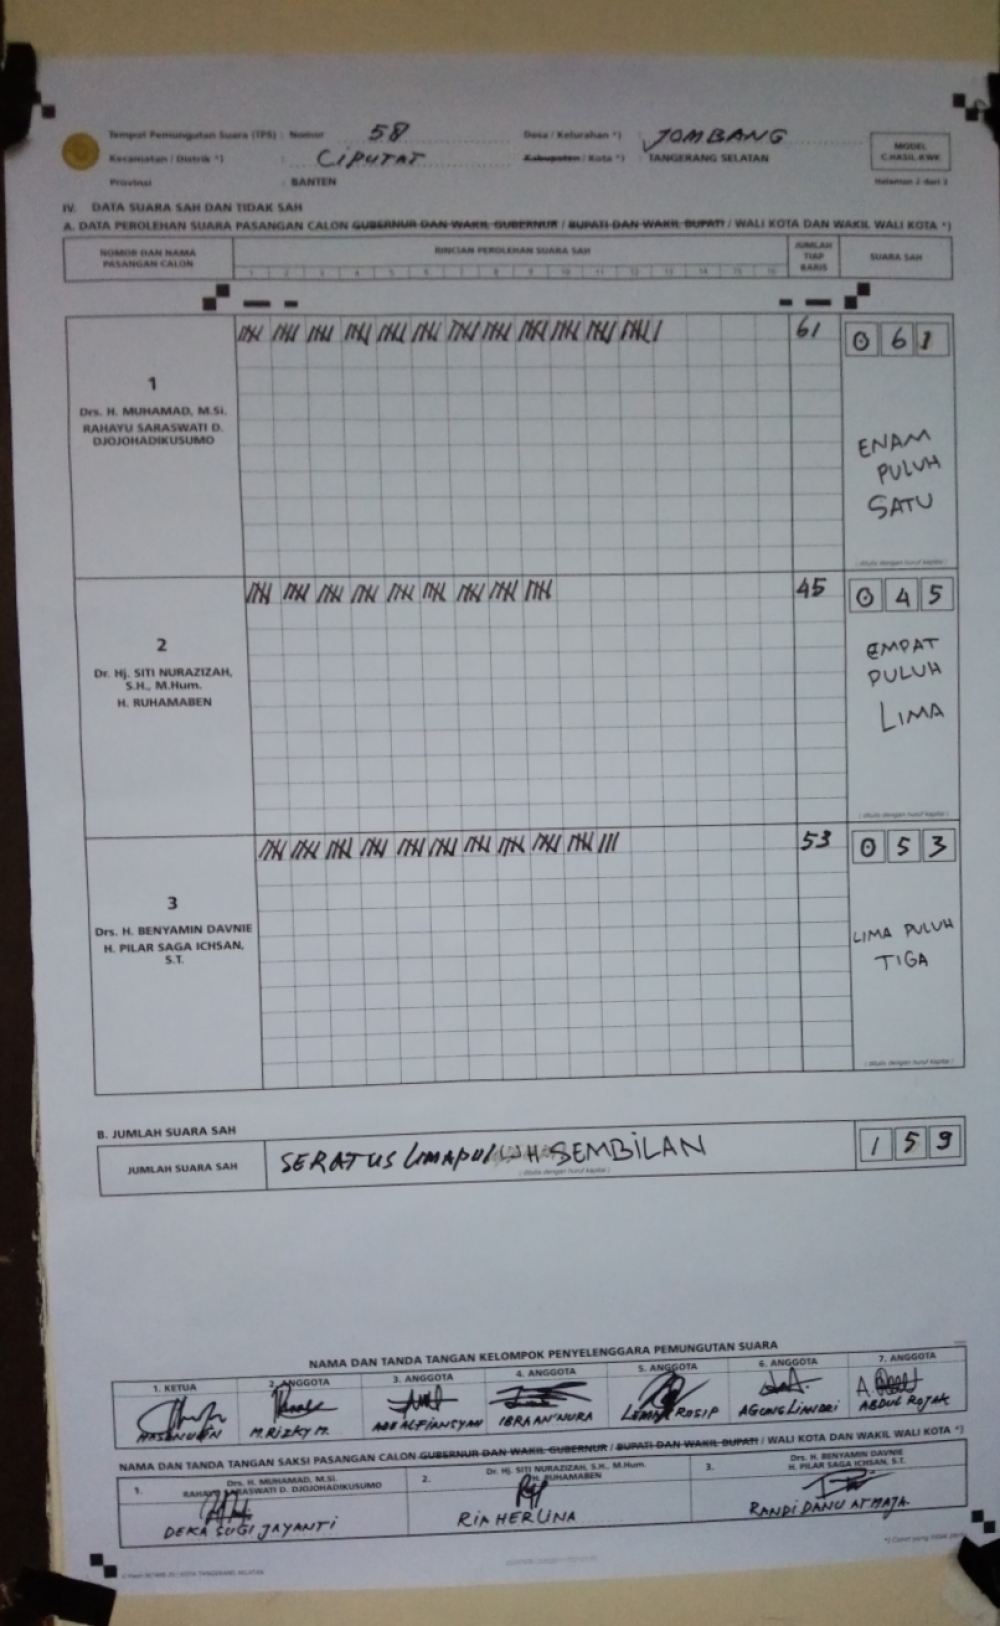 Tempat Pemungutan Suara (TPS) : Nomor 58 Desa / Kelurahan *) : JOMBANG
Kecamatan / Distrik *) : CIPUTAT Kabupaten / Kota *) : TANGERANG SELATAN
Provinsi : BANTEN
MODEL
C.HASIL-KWK
Halaman 2 dari 3
IV. DATA SUARA SAH DAN TIDAK SAH
A. DATA PEROLEHAN SUARA PASANGAN CALON GUBERNUR DAN WAKIL GUBERNUR / BUPATI DAN WAKIL BUPATI / WALI KOTA DAN WAKIL WALI KOTA *)
NOMOR DAN NAMA PASANGAN CALON
RINCIAN PEROLEHAN SUARA SAH
1 2 3 4 5 6 7 8 9 10 11 12 13 14 15 16
JUMLAH TIAP BARIS
SUARA SAH
1
Drs. H. MUHAMAD, M.Si.
RAHAYU SARASWATI D.
DJOJOHADIKUSUMO
61
0 6 1
ENAM
PULUH
SATU
( ditulis dengan huruf kapital )
2
Dr. Hj. SITI NURAZIZAH,
S.H., M.Hum.
H. RUHAMABEN
45
0 4 5
EMPAT
PULUH
LIMA
( ditulis dengan huruf kapital )
3
Drs. H. BENYAMIN DAVNIE
H. PILAR SAGA ICHSAN,
S.T.
53
0 5 3
LIMA PULUH
TIGA
( ditulis dengan huruf kapital )
B. JUMLAH SUARA SAH
JUMLAH SUARA SAH
SERATUS LIMAPULUH SEMBILAN
( ditulis dengan huruf kapital )
1 5 9
NAMA DAN TANDA TANGAN KELOMPOK PENYELENGGARA PEMUNGUTAN SUARA
1. KETUA 2. ANGGOTA 3. ANGGOTA 4. ANGGOTA 5. ANGGOTA 6. ANGGOTA 7. ANGGOTA
M. RIZKY M. ADE ALFIANSYAH IBRA AN'NURA ROSIP AGUNG LIANDRI ABDUL ROJAK
NAMA DAN TANDA TANGAN SAKSI PASANGAN CALON GUBERNUR DAN WAKIL GUBERNUR / BUPATI DAN WAKIL BUPATI / WALI KOTA DAN WAKIL WALI KOTA *)
1. Drs. H. MUHAMAD, M.Si.
RAHAYU SARASWATI D. DJOJOHADIKUSUMO
DEKA SUGI JAYANTI
2. Dr. Hj. SITI NURAZIZAH, S.H., M.Hum.
H. RUHAMABEN
RIA HERLINA
3. Drs. H. BENYAMIN DAVNIE
H. PILAR SAGA ICHSAN, S.T.
RANDI DANU ATMAJA
*) Coret yang tidak perlu